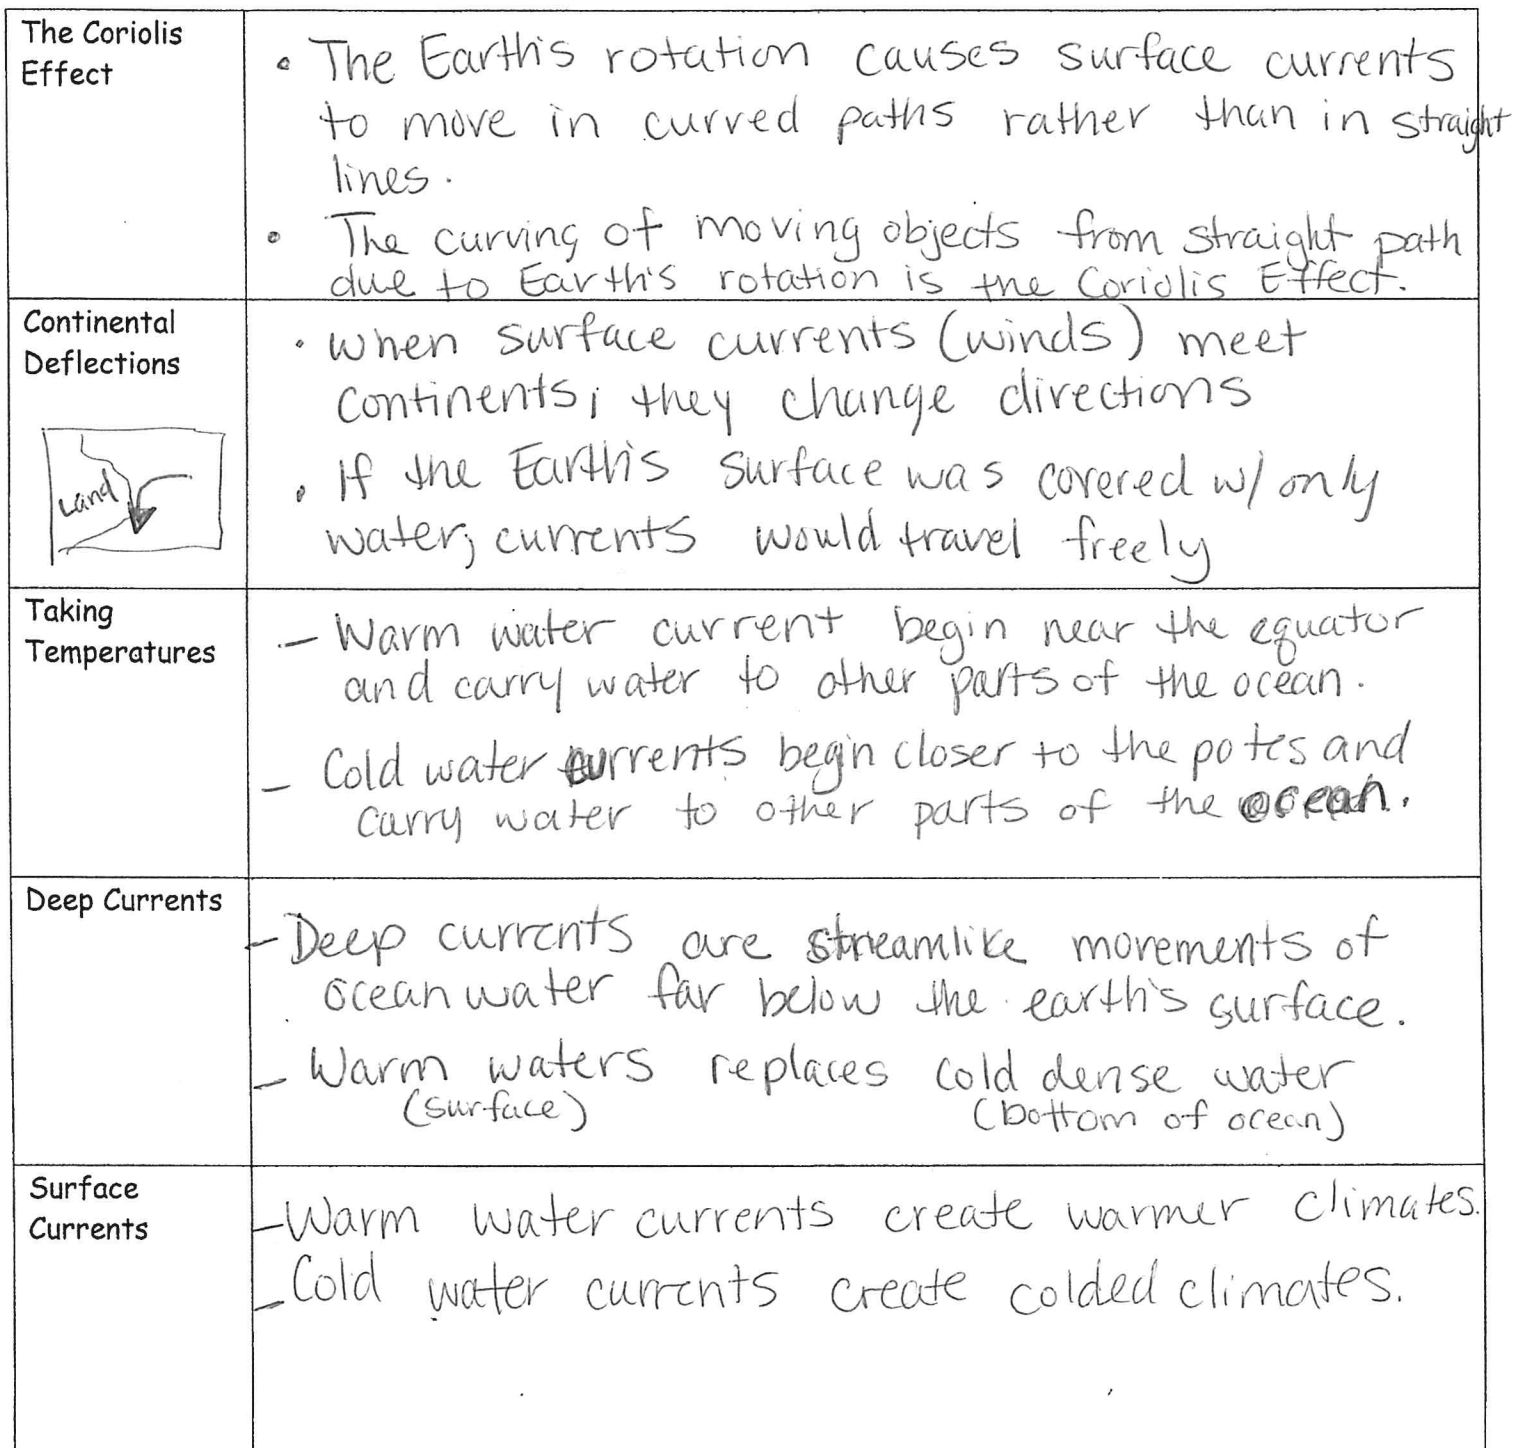 The Coriolis
Effect
• The Earth's rotation causes surface currents
to move in curved paths rather than in straight
lines.
• The curving of moving objects from straight path
due to Earth's rotation is the Coriolis Effect.
Continental
Deflections
Land
• When surface currents (winds) meet
continents; they change directions
• If the Earth's surface was covered w/ only
water; currents would travel freely
Taking
Temperatures
- Warm water current begin near the equator
and carry water to other parts of the ocean.
- Cold water currents begin closer to the poles and
carry water to other parts of the ocean.
Deep Currents
- Deep currents are streamlike movements of
ocean water far below the earth's surface.
- Warm waters replaces cold dense water
(surface) (bottom of ocean)
Surface
Currents
- Warm water currents create warmer climates.
- Cold water currents create colded climates.